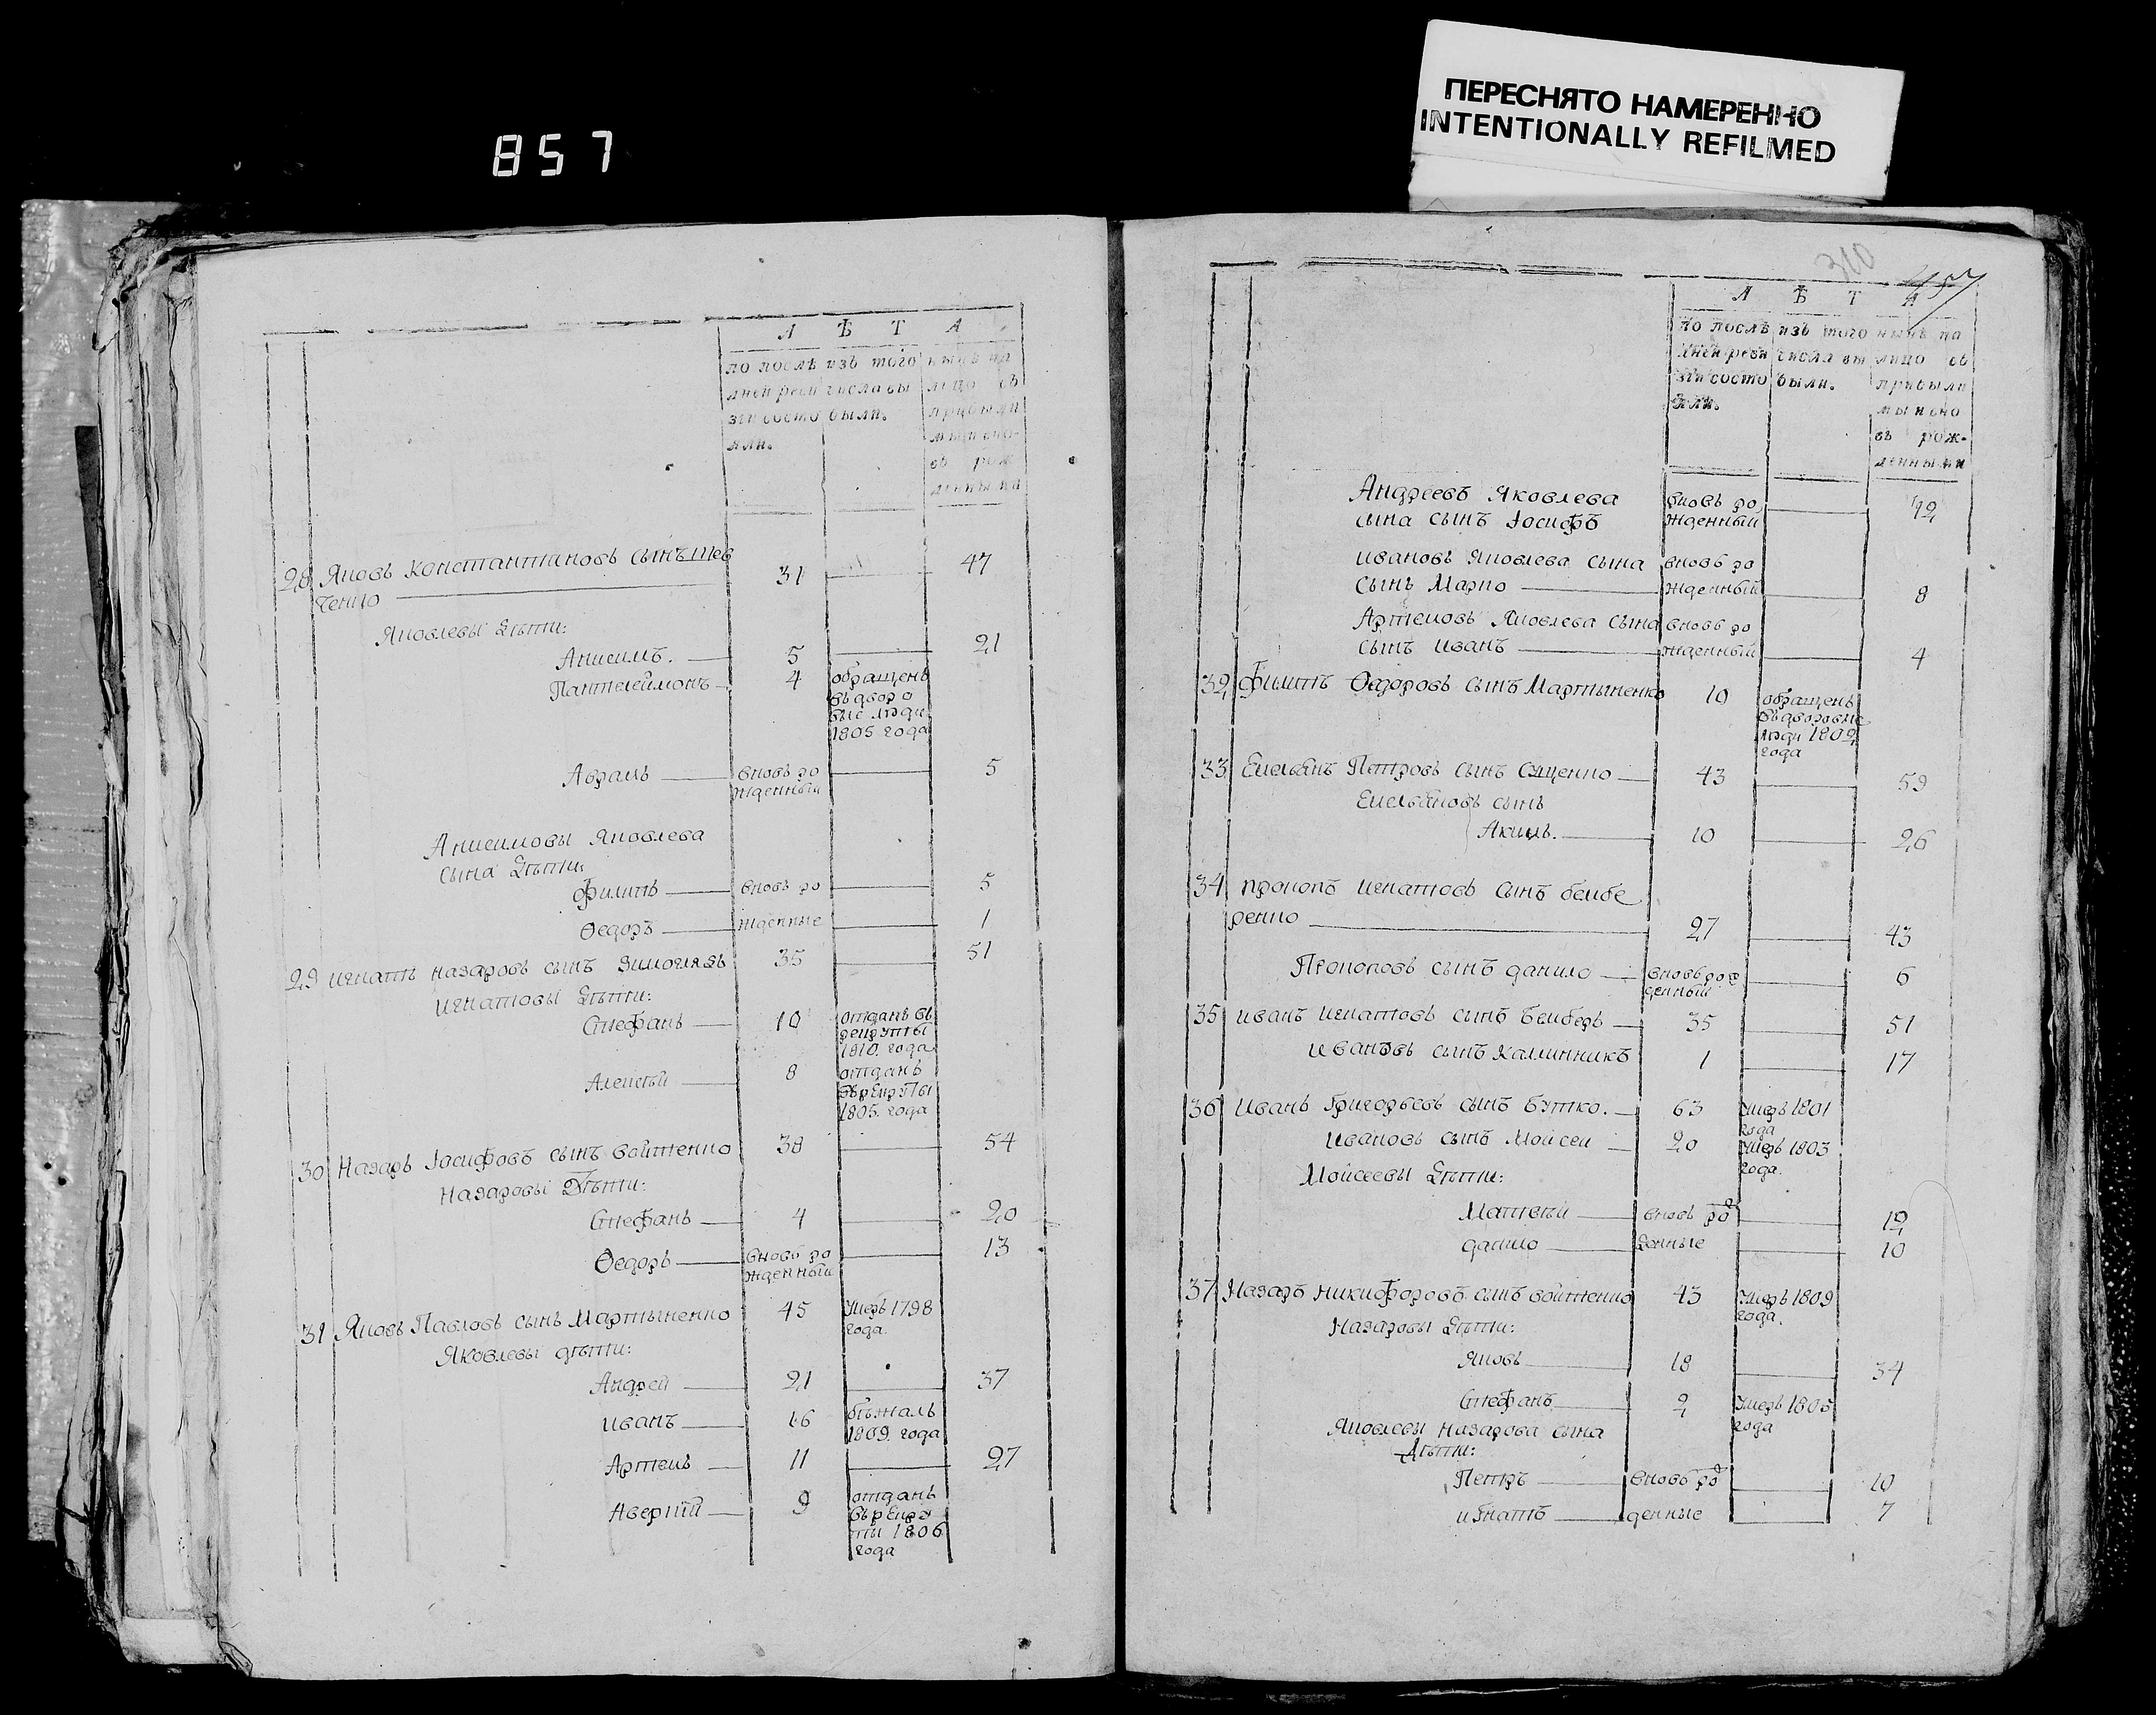 857
ПЕРЕСНЯТО НАМЕРЕННО
INTENTIONALLY REFILMED
Л Ѣ Т А
по послѣ изъ того нынѣ на
дней реви числа вы лицо съ
зіи состо были. прибылы
яли. ми и вно-
въ рож
денными
28 Яковъ Константиновъ сынъ Шев 31 47
ченко
Яковлевы дѣти:
Анисимъ. 5 21
Пантелеймонъ 4 обращенъ
въ дворо
вые люди
1805 года
Аврамъ вновь ро 5
жденный
Анисимовы Яковлева
сына дѣти:
Филипъ вновь ро 5
Ѳедоръ жденные 1
29 Игнатъ Назаровъ сынъ Зимоглядъ 35 51
Игнатовы дѣти:
Стефанъ 10 отданъ въ
рекруты
1810. года
Алексѣй 8 отданъ
въ рекруты
1805. года
30 Назаръ Іосифовъ сынъ Войтенко 38 54
Назаровы дѣти:
Стефанъ 4 20
Ѳедоръ вновь ро 13
жденный
31 Яковъ Павловъ сынъ Мартыненко 45 умеръ 1798
года.
Яковлевы дѣти:
Андрей 21 37
Иванъ 16 бѣжалъ
1809. года
Артемъ 11 27
Аверкій 9 отданъ
въ рекру
ты 1806
года
310
457
Л Ѣ Т А
по послѣ изъ того нынѣ на
дней реви числа вы лицо съ
зіи состо были. прибыли
яли. мы и вно
въ рож-
денными
Андреевъ Яковлева вновь ро 12
сына сынъ Іосифъ жденный
Ивановъ Яковлева сына вновь ро
сынъ Марко жденный 8
Артемовъ Яковлева сына вновь ро
сынъ Иванъ жденный 4
32 Филипъ Ѳедоровъ сынъ Мартыненко 10 обращенъ
въ дворовые
люди 1802
года
33 Емельянъ Петровъ сынъ Сущенко 43 59
Емельяновъ сынъ
Акимъ. 10 26
34 Прокопъ Игнатовъ сынъ Бембе
ренко 27 43
Прокоповъ сынъ Данило вновь рож 6
денный
35 Иванъ Игнатовъ сынъ Бемберъ 35 51
Ивановъ сынъ Каллинникъ 1 17
36 Иванъ Григорьевъ сынъ Бутко. 63 умеръ 1801
года
Ивановъ сынъ Мойсей 20 умеръ 1803
года.
Мойсеевы дѣти:
Матвѣй вновь рож 12
Данило денные 10
37 Назаръ Никифоровъ сынъ Войтенко 43 умеръ 1809
года.
Назаровы дѣти:
Яковъ 18 34
Стефанъ 2 умеръ 1805
года
Яковлевы Назарова сына
дѣти:
Петръ вновь рож 10
Игнатъ денные 7